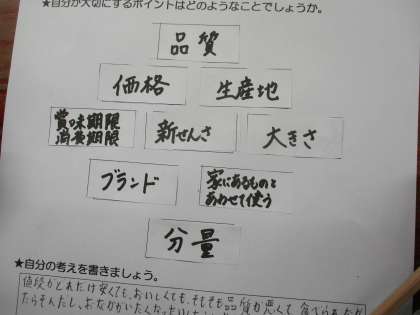 ★自分が大切にするポイントはどのようなことでしょうか。
品質
価格
生産地
賞味期限
消費期限
新せんさ
大きさ
ブランド
家にあるものと
あわせて使う
分量
★自分の考えを書きましょう。
値段がどれだけ安くても、おいしくても、そもそも品質が悪くて、食べられなか
たらそんだし、おなかがいたくな